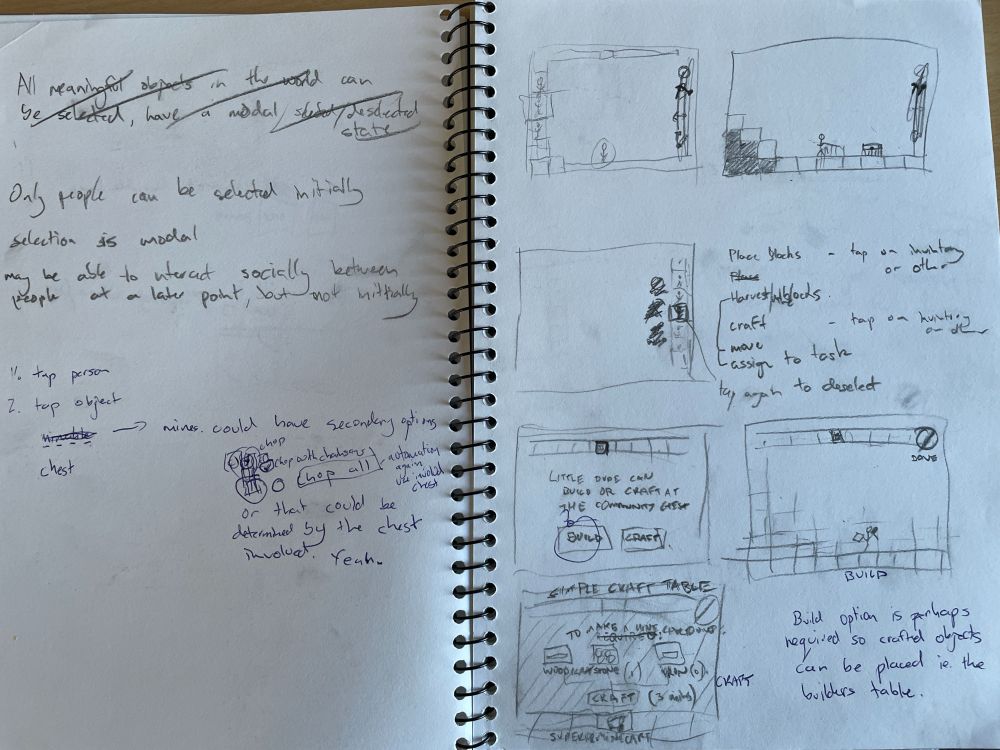 All meaningful objects in the world can
be selected, have a modal select/deselected
state
Only people can be selected initially
selection is modal
may be able to interact socially between
people at a later point, but not initially
1. tap person
2. tap object
mines could have secondary options
chest
chop
chop with chainsaw
chop all
automation
again
use involved
chest
or that could be
determined by the chest
Yeah.
Place blocks - tap on inventory
or other
Place
Harvest blocks.
craft - tap on inventory
or other
move
assign to task
tap again to deselect
LITTLE DUDE CAN
BUILD OR CRAFT AT
THE COMMUNITY CHEST
BUILD CRAFT
DONE
BUILD
SIMPLE CRAFT TABLE
TO MAKE A
WOOD STONE IRON (0)
CRAFT (3 mins)
CRAFT
Build option is perhaps
required so crafted objects
can be placed ie. the
builders table.